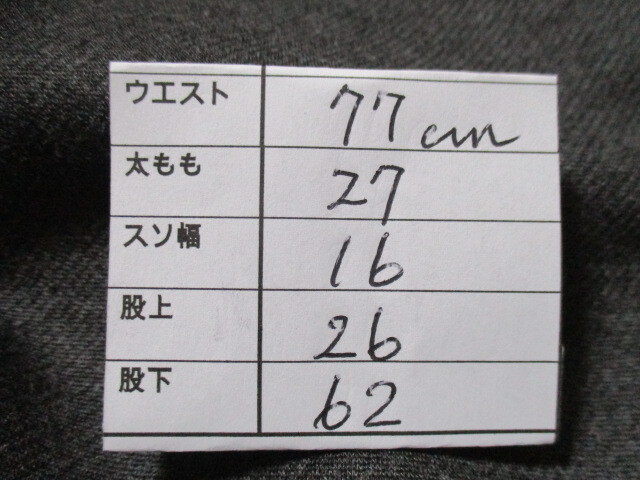 ウエスト 77cm
太もも 27
スソ幅 16
股上 26
股下 62